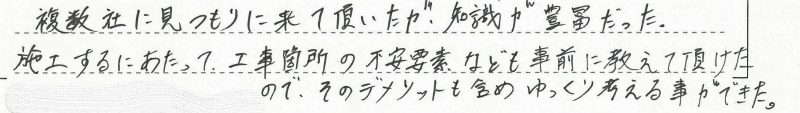 複数社に見つもりに来て頂いたが、知識が豊冨だった。
施工するにあたって、工事箇所の不安要素なども事前に教えて頂けた
ので、そのデメリットも含めゆっくり考える事ができた。